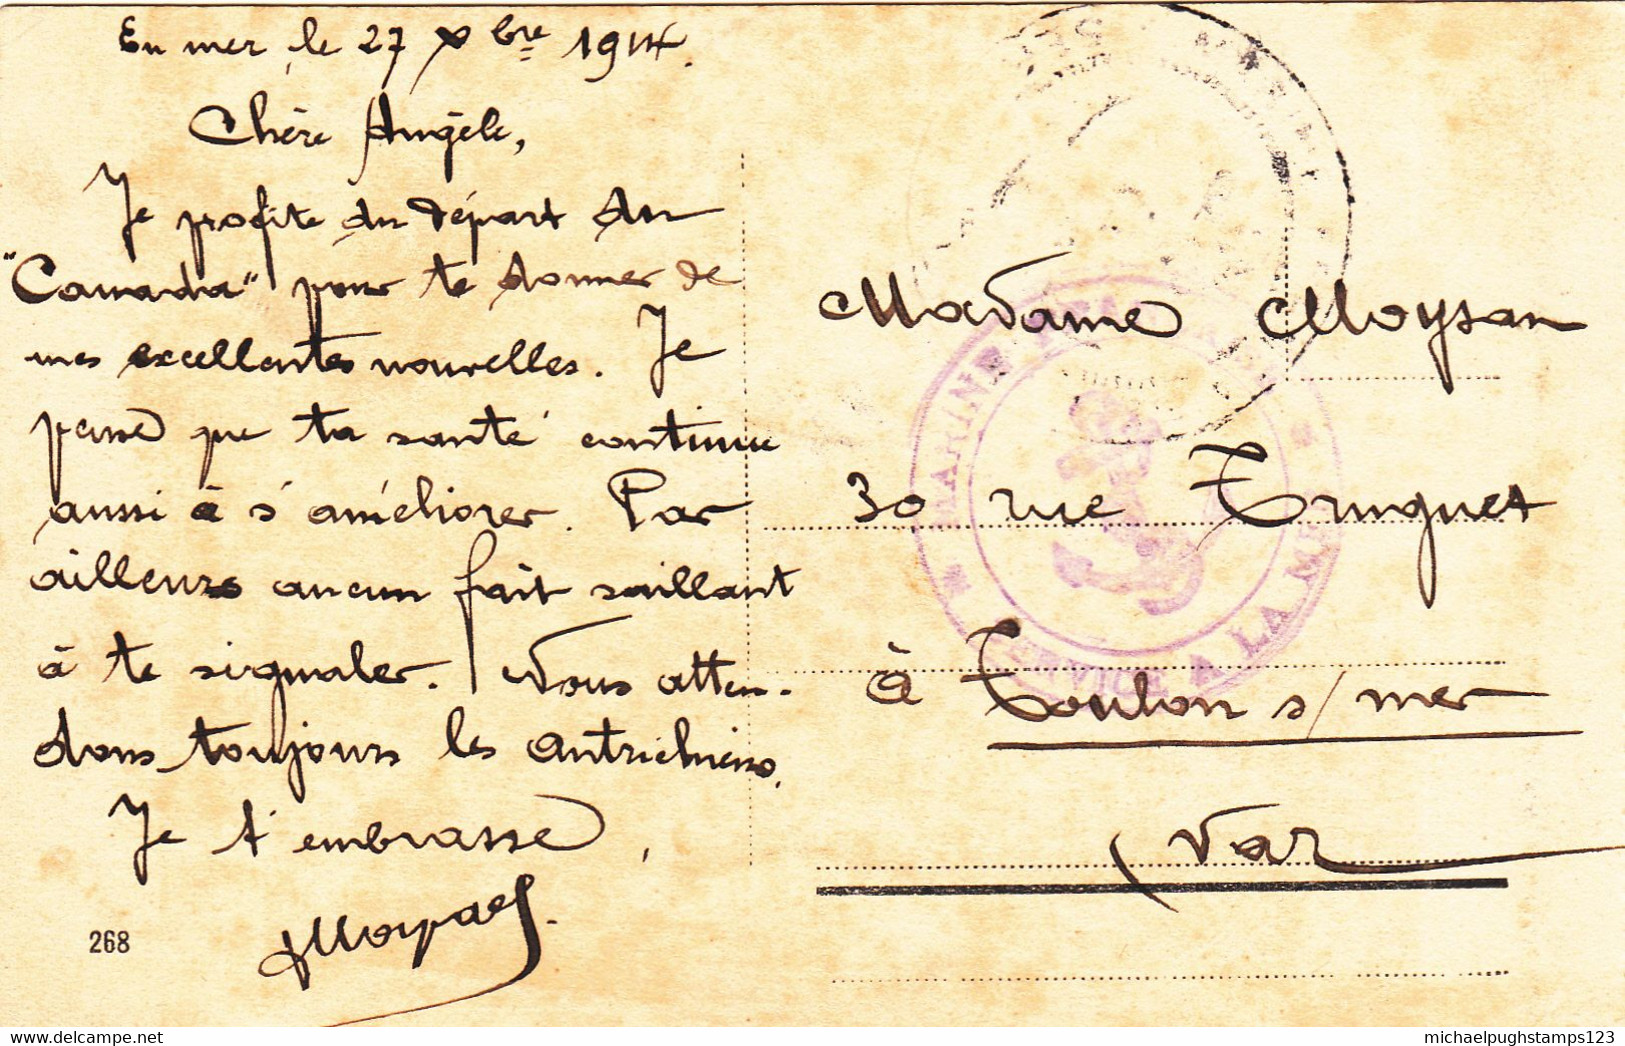 En mer, le 27 Xbre 1914.
Chère Angèle,
Je profite du départ du
"Canada" pour te donner de
mes excellentes nouvelles. Je
pense que ta santé continue
aussi à s'améliorer. Par
ailleurs aucun fait saillant
à te signaler. Nous atten-
dons toujours les Autrichiens.
Je t'embrasse,
Moysan.
268
Madame Moysan
30 rue Truguet
à Toulon s/mer
Var
MARINE FRANÇAISE
SERVICE A LA MER
michaelpughstamps123